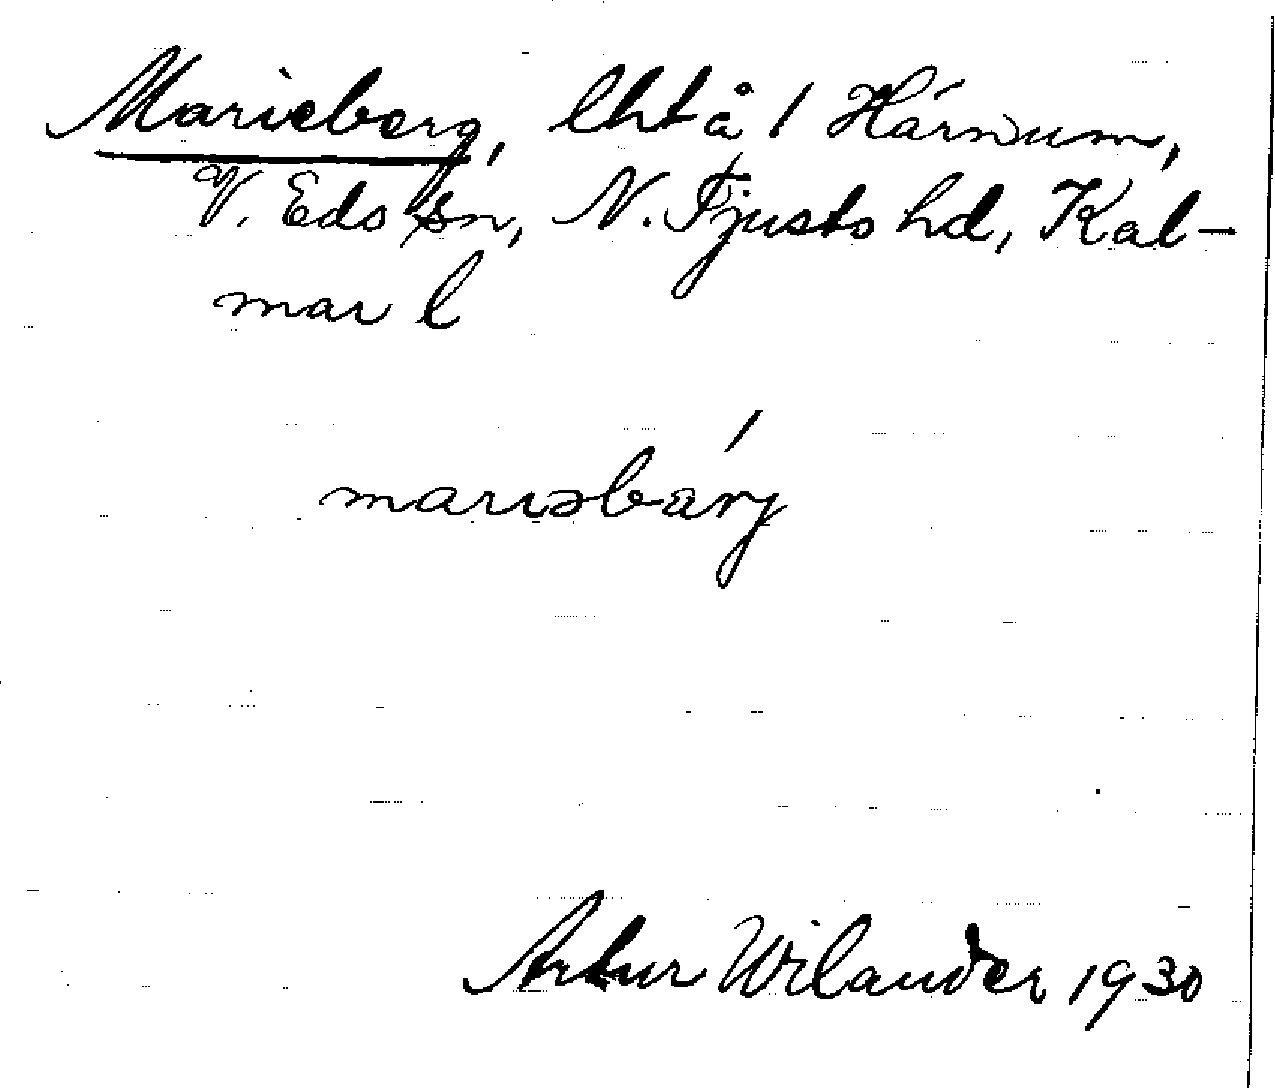 Marieberg, lht å 1 Härnum,
V. Eds sn, N. Tjusts hd, Kal-
mar l
marıəbärj
Artur Wilander 1930